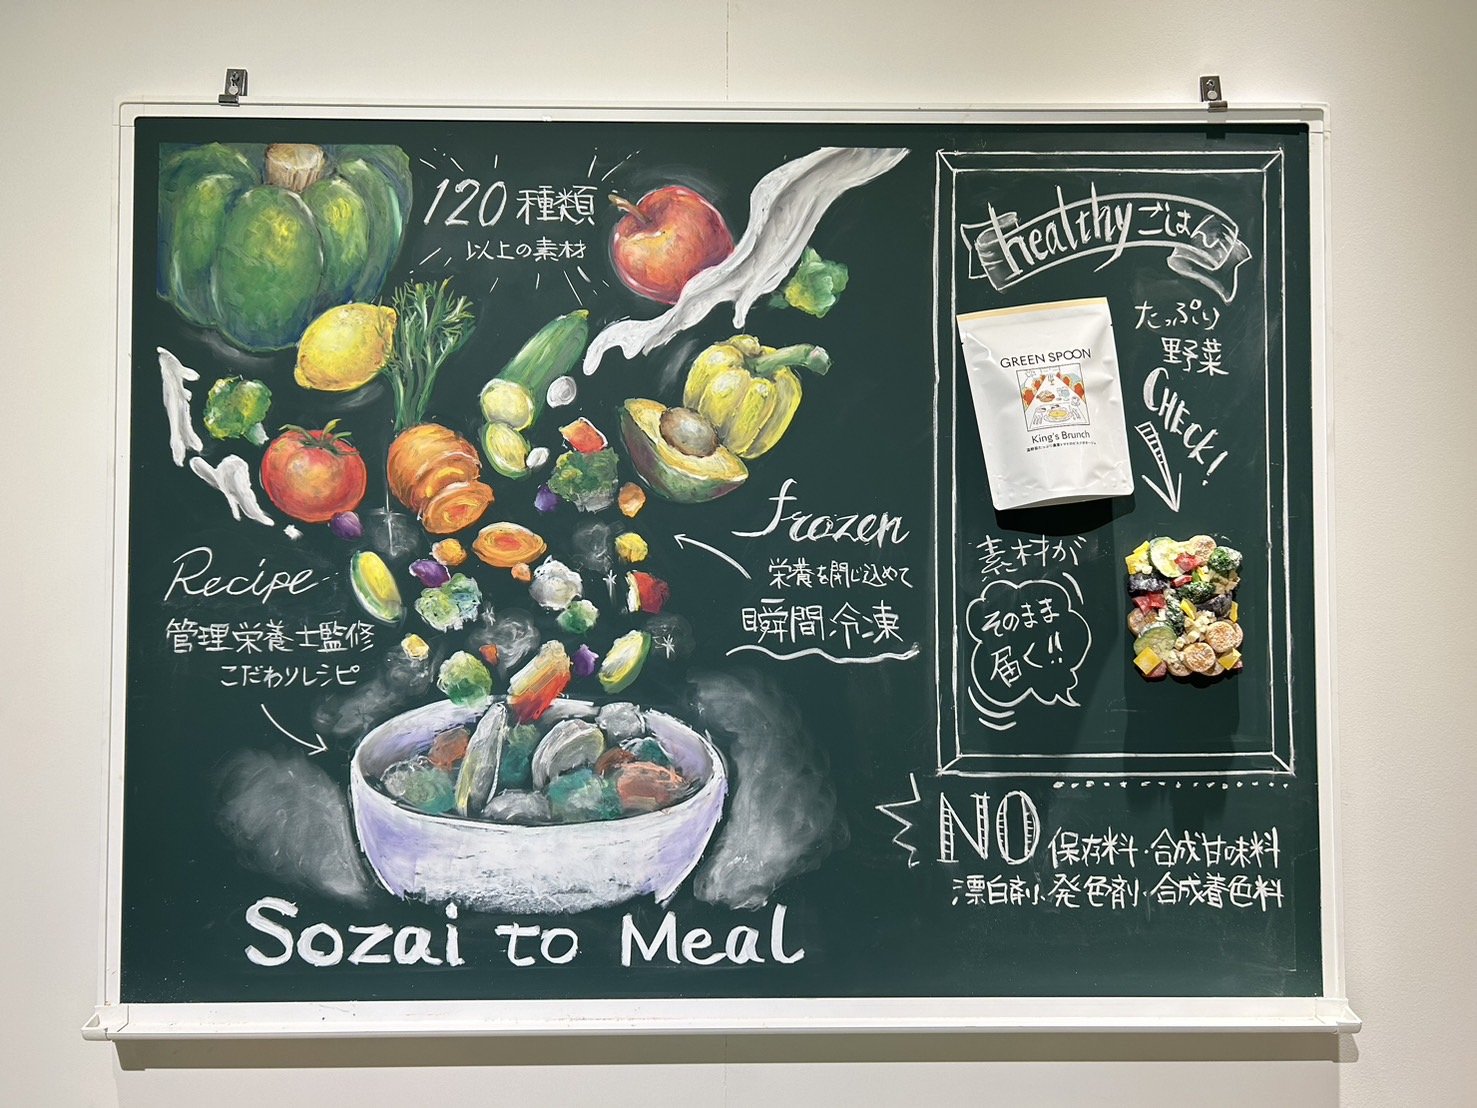 120種類
以上の素材
Recipe
管理栄養士監修
こだわりレシピ
frozen
栄養を閉じ込めて
瞬間冷凍
Sozai to Meal
healthyごはん
たっぷり
野菜
CHECK!
GREEN SPOON
King's Brunch
素材が
そのまま
届く!!
NO 保存料・合成甘味料
漂白剤・発色剤・合成着色料